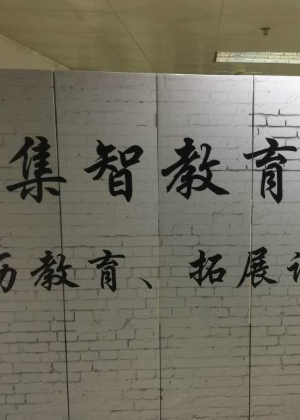 集智教育
历教育、拓展